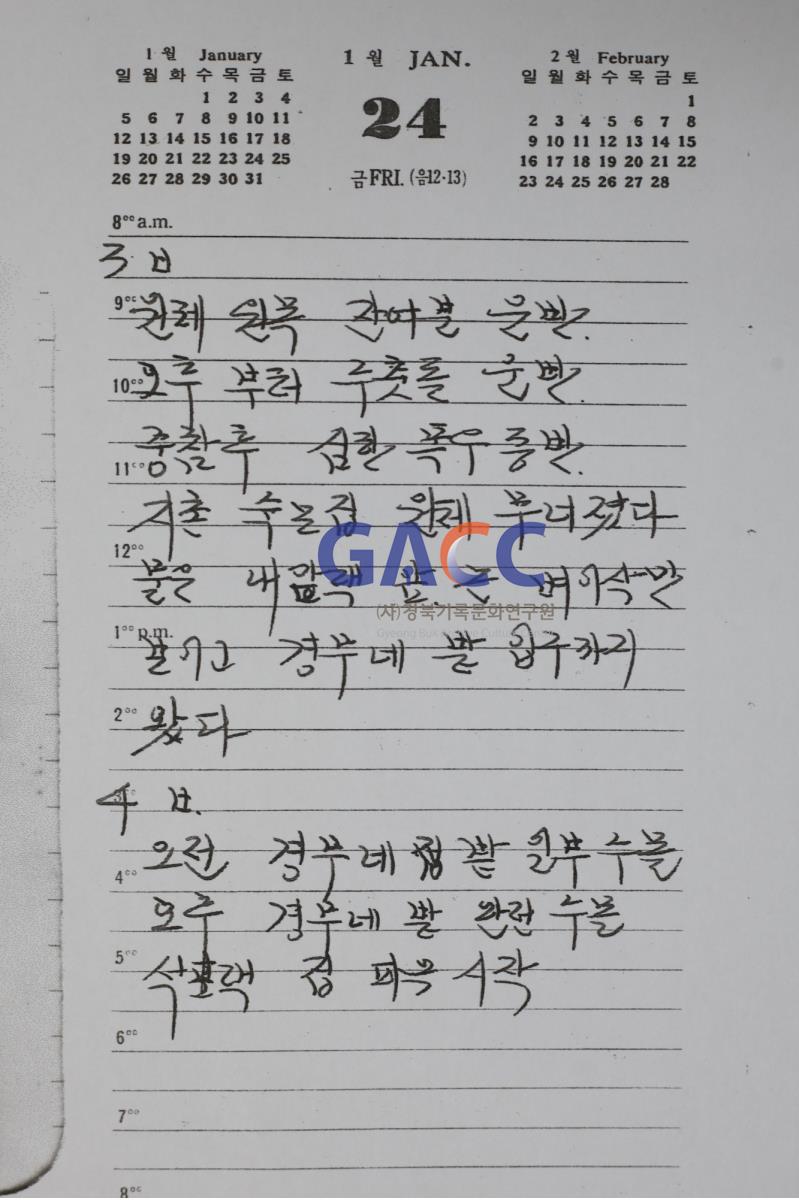 1월 January
일 월 화 수 목 금 토
1 2 3 4
5 6 7 8 9 10 11
12 13 14 15 16 17 18
19 20 21 22 23 24 25
26 27 28 29 30 31
1월 JAN.
24
금 FRI. (음12·13)
2월 February
일 월 화 수 목 금 토
1
2 3 4 5 6 7 8
9 10 11 12 13 14 15
16 17 18 19 20 21 22
23 24 25 26 27 28
8°° a.m.
3
9°°
원레 잔여분 운반.
10°°
오후 부터 주춧돌 운반
중참후 심한 폭우
11°°
지촌 집 무너졌다
12°°
물은 내앞댁
1°° p.m.
보이고 경부네 밭 입구까지
2°°
왔다
3°°
4
오전 경부네 집 일부 수몰
4°°
오후 경부네 밭 완전 수몰
5°°
집 시작
6°°
7°°
8°°
GACC
(사)경북기록문화연구원